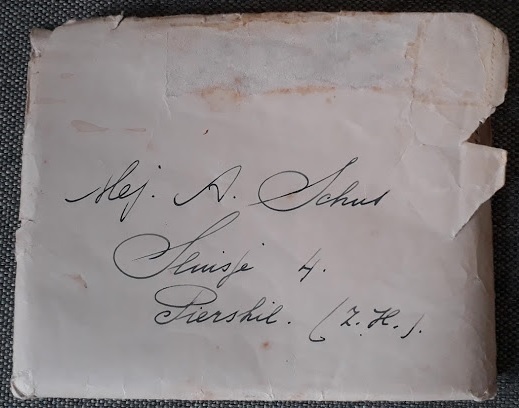 Mej. A. Schut
Sluisje 4.
Piershil. (Z.H.).